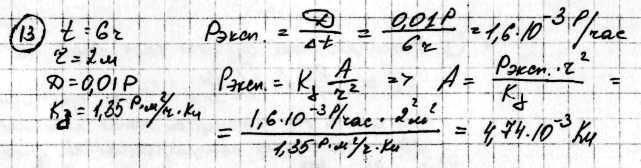 (13) t = 6ч
r = 2м
D = 0,01Р
Kɣ = 1,35 Р·м²/ч·Ки
Pэксп. = D/Δt = 0,01Р/6ч = 1,6·10⁻³ Р/час
Pэксп. = Kɣ A/r² => A = Pэксп.·r²/Kɣ =
= 1,6·10⁻³ Р/час · 2²м²/1,35 Р·м²/ч·Ки = 4,74·10⁻³ Ки